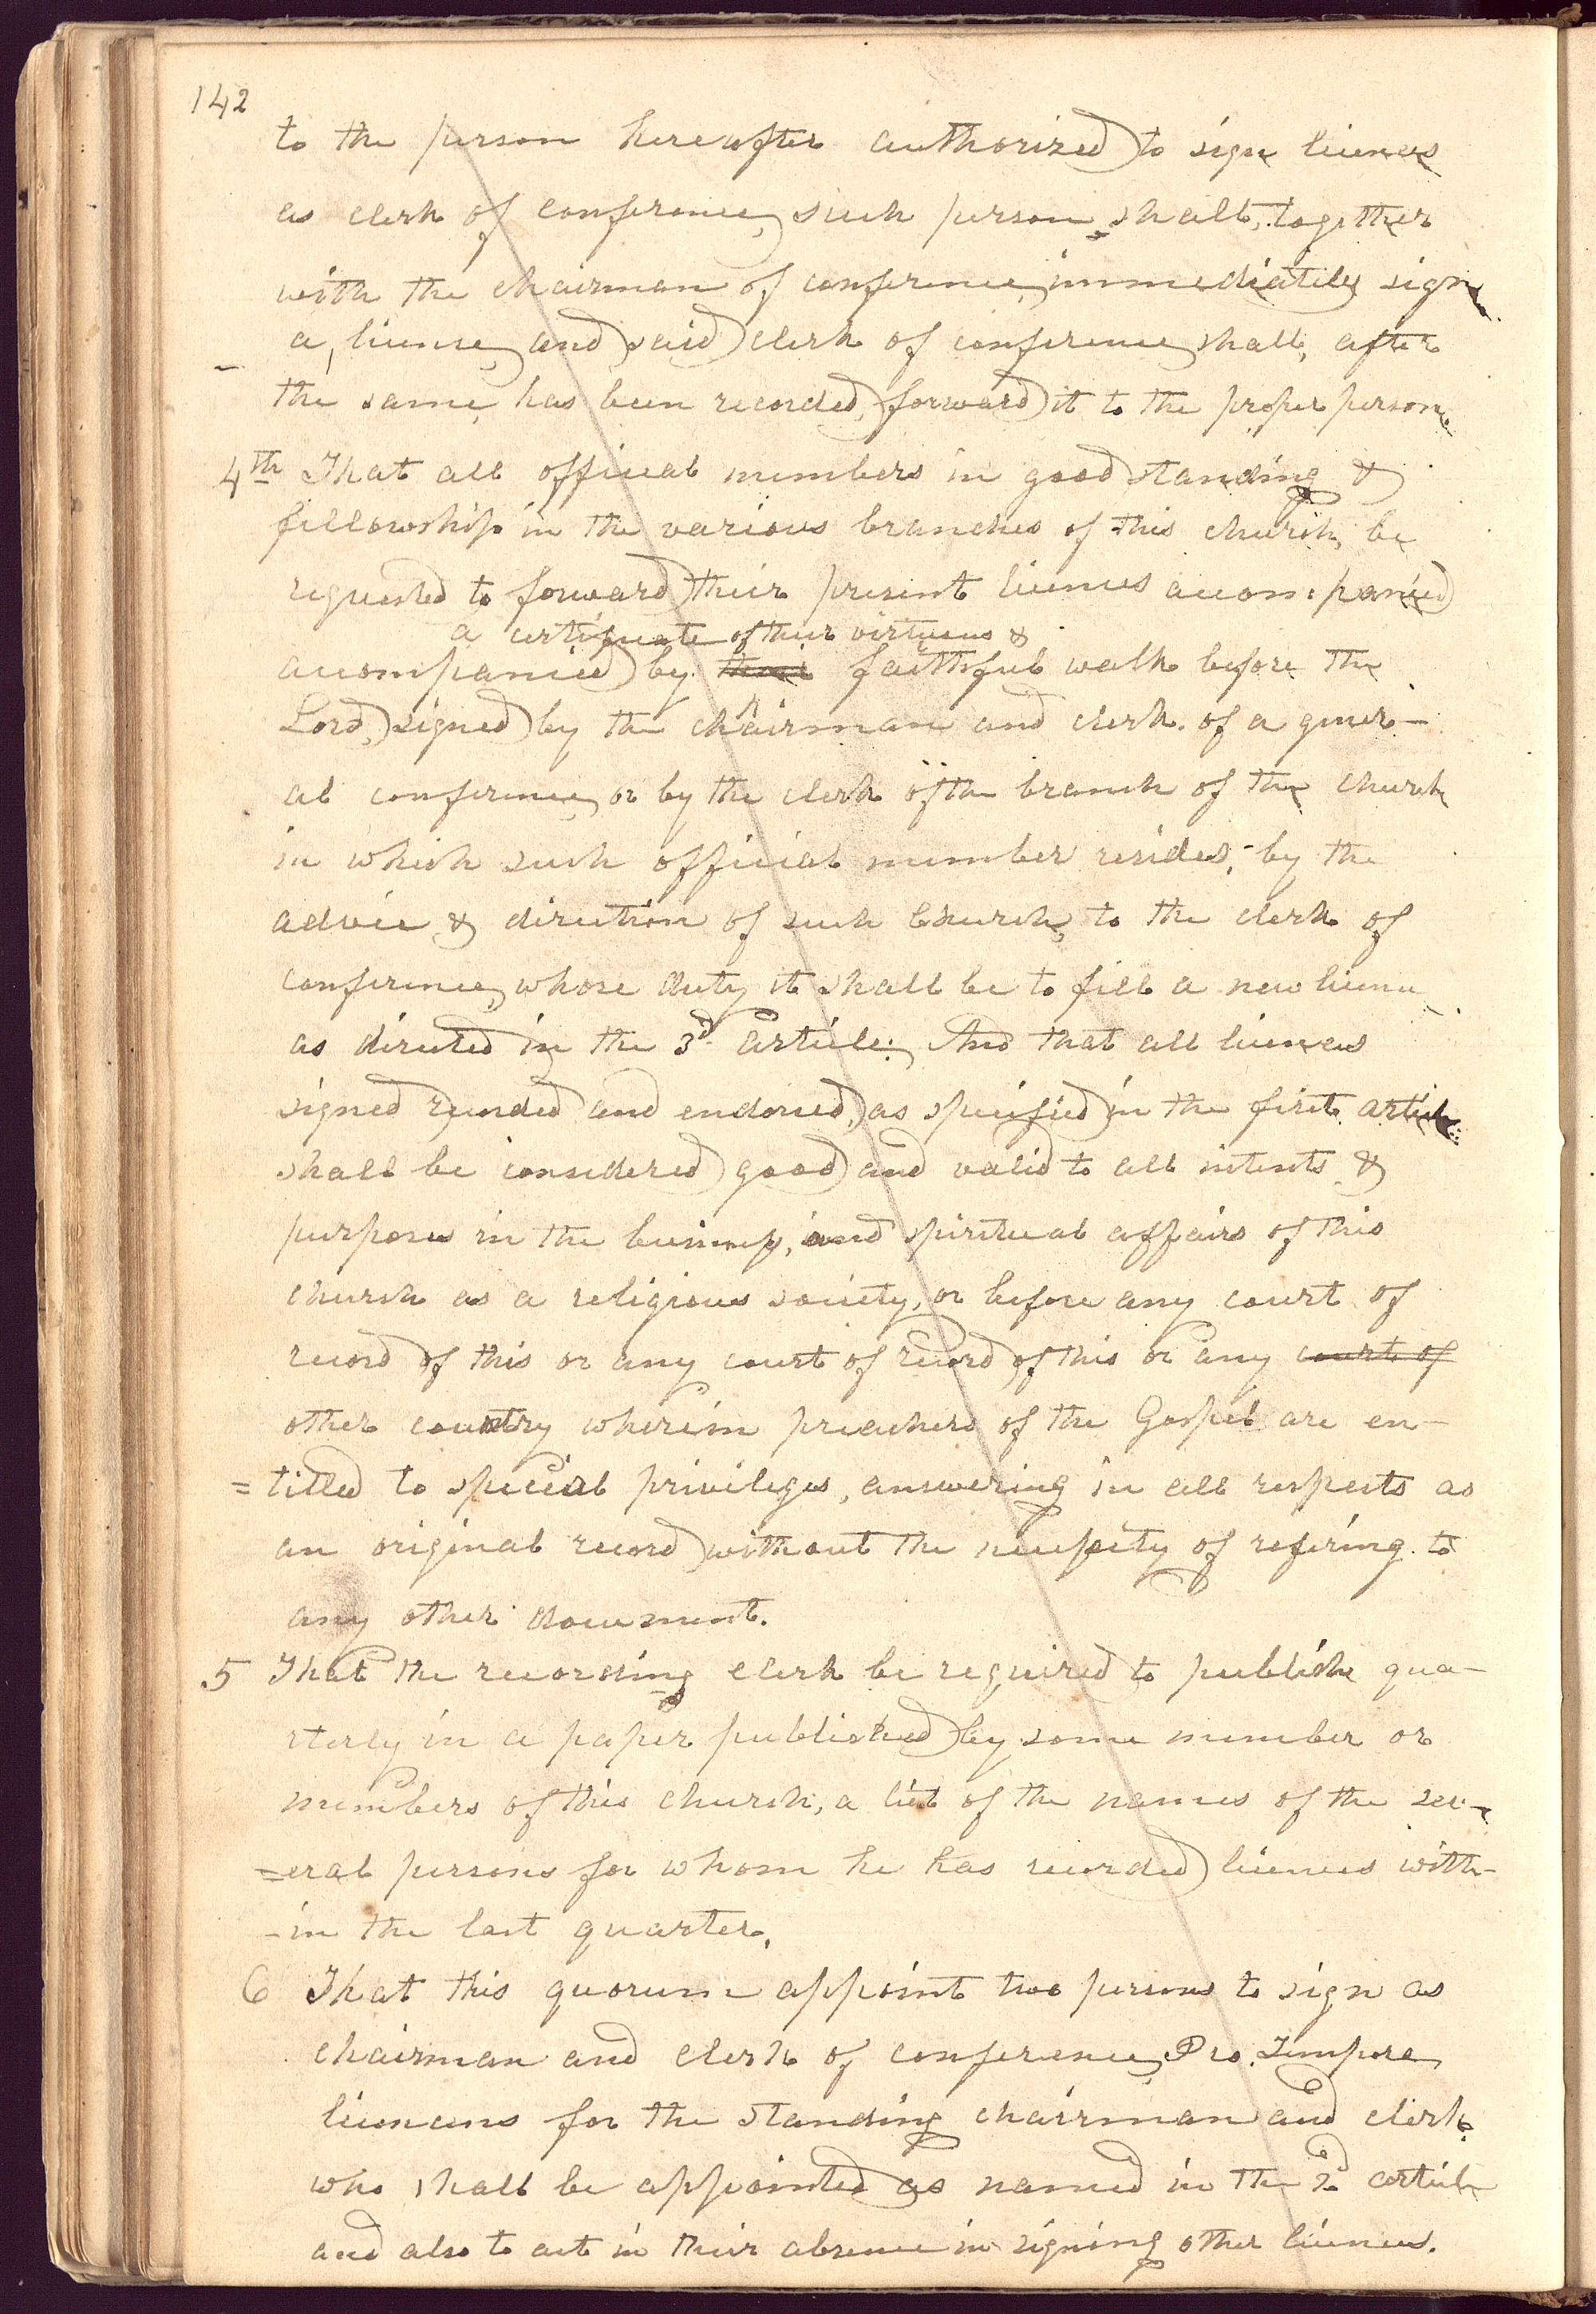 142
to the person hereafter authorized to sign licenses
as clerk of conference, such person, shall, together
with the chairman of conference, immediately sign
a, license, and said clerk of conference shall, after
the same, has been recorded, forward it to the proper person.
4th That all official members in good standing &
fellowship in the various branches of this church, be
requested to forward their present licenses accompanied
a certificate of their virtuous &
accompanied by their faithful walk before the
Lord, signed by the chairman and clerk of a gener-
al conference, or by the clerk of the branch of the church
in which such official member resides, by the
advice & direction of such Church, to the clerk of
conference, whose duty it shall be to fill a new license
as directed in the 3d. article; And that all licenses
signed recorded and endorsed, as specified in the first article
shall be considered good and valid to all intents &
purposes in the business, and spiritual affairs of this
church as a religious society, or before any court of
record of this or any court of record of this or any court of
other country wherein preachers of the Gospel are en-
=titled to special privileges, answering in all respects as
an original record without the necessity of refering to
any other document.
5 That the recording clerk be required to publish qua-
rterly in a paper published by some member or
members of this church, a list of the names of the sev-
=eral persons for whom he has recorded licenses with-
-in the last quarter.
6 That this quorum appoint two persons to sign as
chairman and clerk of conference, Pro. Tempore,
licenses for the standing chairman and clerk,
who shall be appointed as named in the 2d article
and also to act in their absence in signing other licenses.